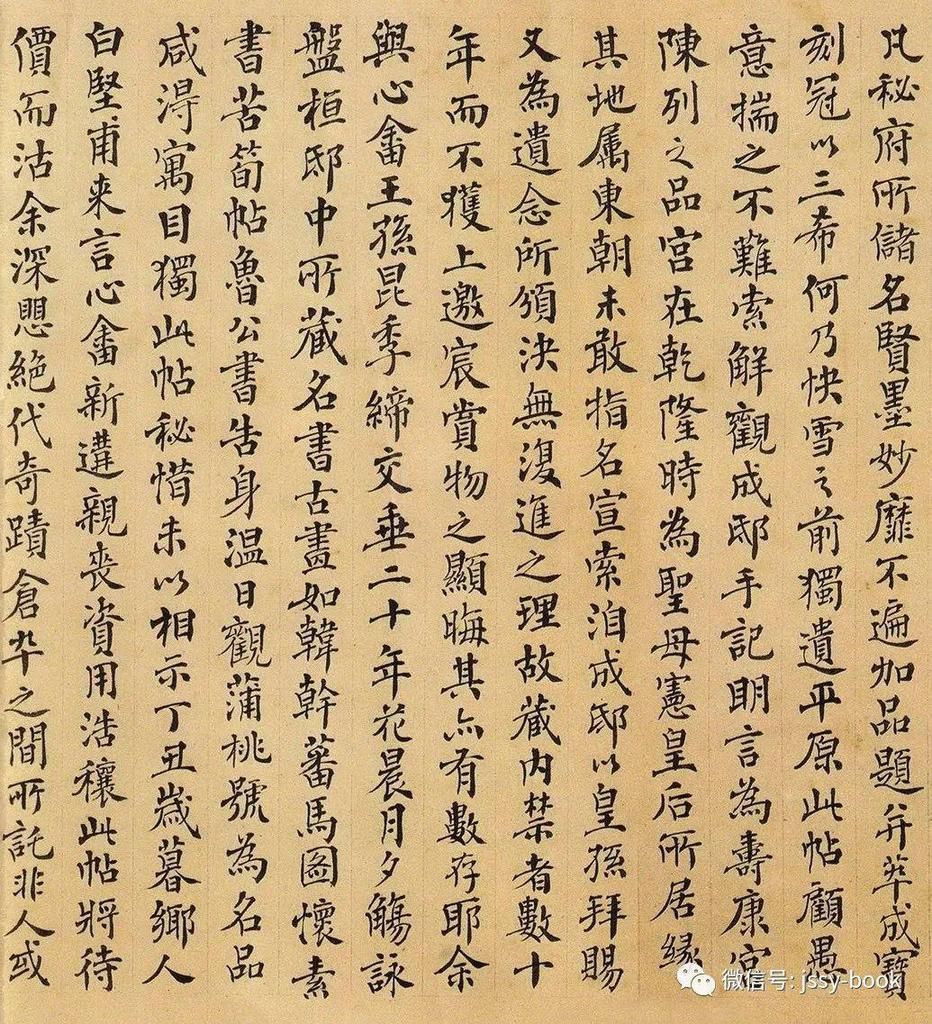 凡秘府所儲名賢墨妙靡不遍加品題并萃成寶
刻冠以三希何乃快雪之前獨遺平原此帖顧愚
意揣之不難索解觀成邸手記明言為壽康宮
陳列之品宮在乾隆時為聖母憲皇后所居緣
其地屬東朝未敢指名宣索洎成邸以皇孫拜賜
又為遺念所頒決無復進之理故藏内禁者數十
年而不獲上邀宸賞物之顯晦其亦有數存耶余
與心畬王孫昆季締交垂二十年花晨月夕觴詠
盤桓邸中所藏名書古畫如韓幹蕃馬圖懷素
書苦筍帖魯公書告身溫日觀蒲桃號為名品
咸得寓目獨此帖秘惜未以相示丁丑歲暮鄉人
白堅甫来言心畬新遘親喪資用浩穰此帖將待
價而沽余深懼絕代奇蹟倉卒之間所託非人或
微信号: jssy-book